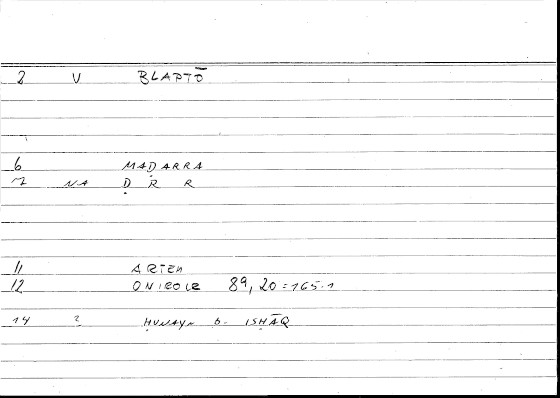 2 V BLAPTŌ
6 MAḌARRA
7 NA Ḍ R R
11 ARTEM
12 ONIROCR 89, 20 = 165.1
14 ? ḤUNAYN b. ISḤĀQ